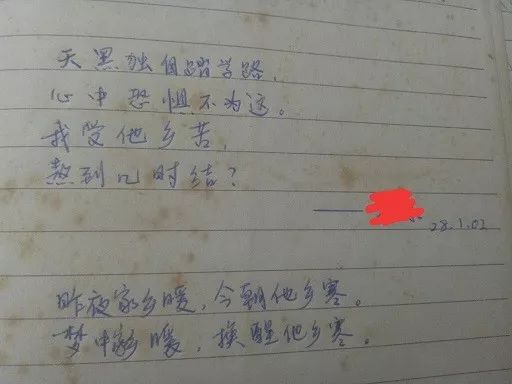 天黑独自踏学路，
心中恐惧不为这。
我受他乡苦，
熬到几时结？
——
28.1.02
昨夜家乡暖，今朝他乡寒。
梦中家乡暖，换醒他乡寒。